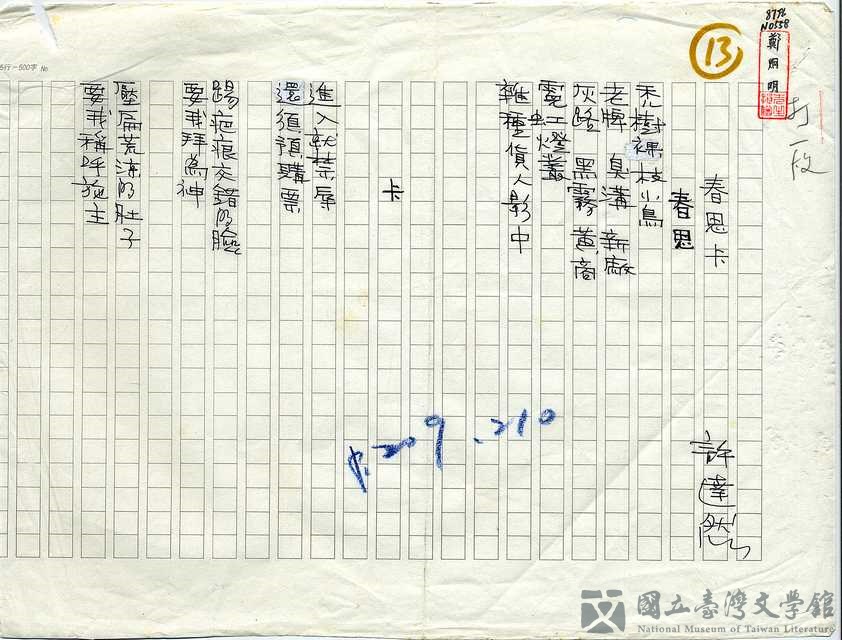 春思卡
許達然
春思
禿樹裸枝小鳥
老牌 臭溝 新廠
灰路 黑霧 黃商
霓虹燈叢
雜種貨人影中
卡
進入就禁辱
還須預購票
踢疤痕交錯的臉
要我拜為神
壓扁荒涼的肚子
要我稱呼施主
13
8796
N0558
鄭烱明
打一段
5行-500字 No
p.209、210
國立臺灣文學館
National Museum of Taiwan Literature